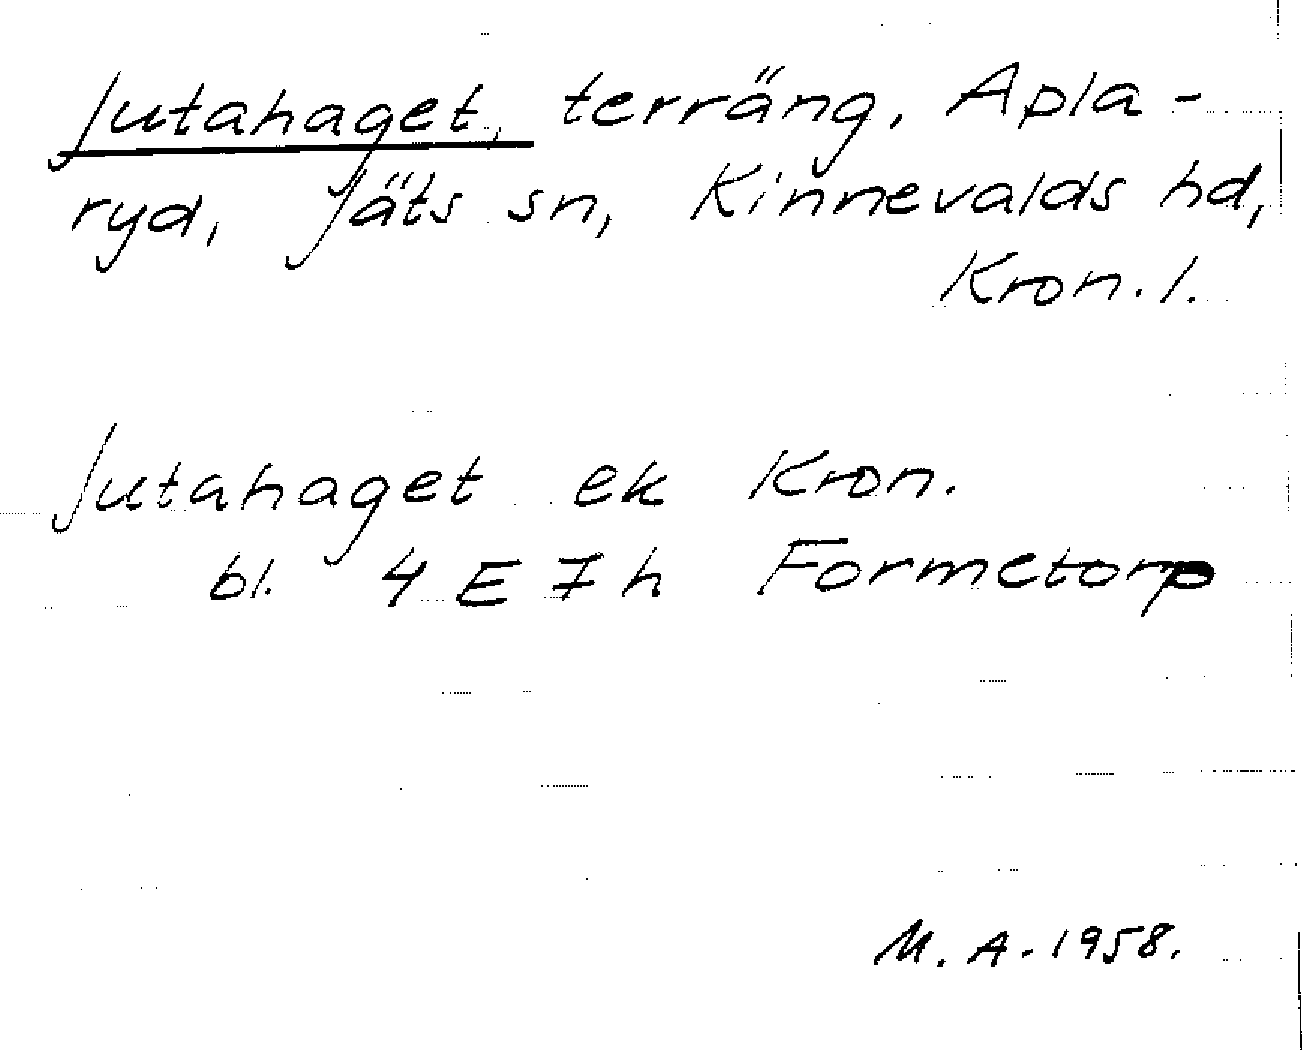 Jutahaget, terräng, Apla-
ryd, Jäts sn, Kinnevalds hd,
Kron. l.
Jutahaget ek Kron.
bl. 4 E 7 h Formetorp
M. A. 1958.